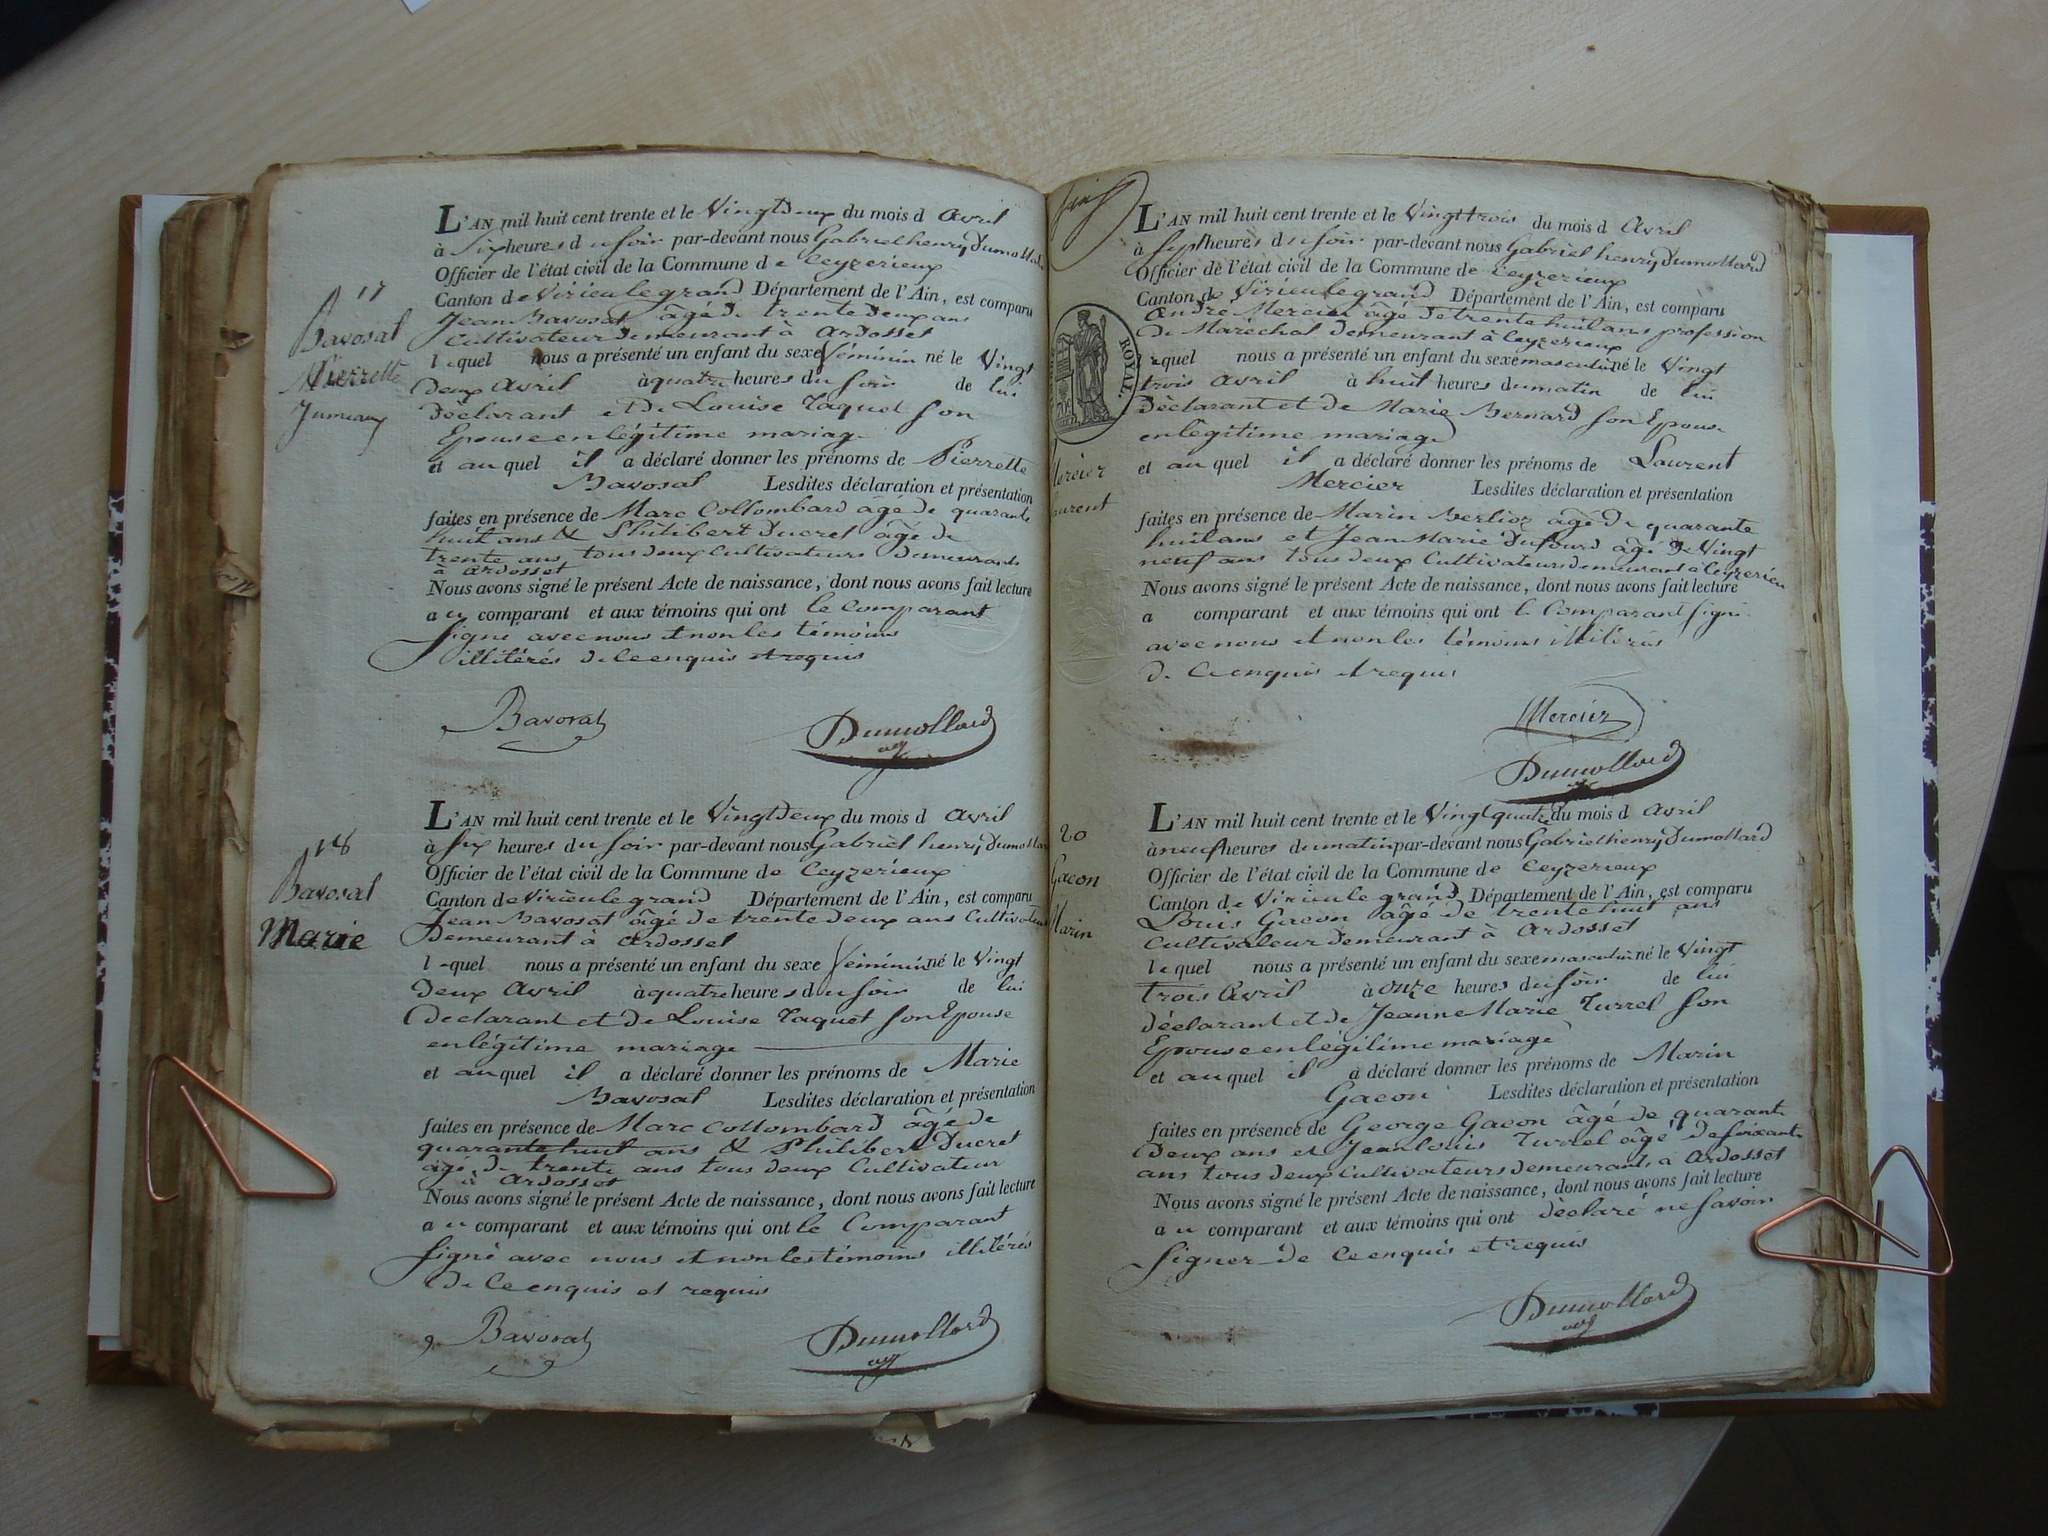 17
Bavosat
Pierrette
Jumeaux
L'AN mil huit cent trente et le Vingt Deux du mois d Avril
à Six heures du soir par-devant nous Gabriel henry Dumollard
Officier de l'état civil de la Commune de Ceyzerieux
Canton de Virieu le grand Département de l'Ain, est comparu
Jean Bavosat âgé de trente deux ans
Cultivateur demeurant à Ardosset
lequel nous a présenté un enfant du sexe féminin né le Vingt
Deux Avril à quatre heures du soir de lui
Déclarant et de Louise Taquet son
Epouse en légitime mariage
et au quel il a déclaré donner les prénoms de Pierrette
Bavosat Lesdites déclaration et présentation
faites en présence de Marc Collombard âgé de quarante
huit ans & Philibert Ducret âgé de
trente ans tous deux Cultivateurs Demeurants
à Ardosset
Nous avons signé le présent Acte de naissance, dont nous avons fait lecture
au comparant et aux témoins qui ont le Comparant
signé avec nous et non les témoins
illitérés de ce enquis et requis
Bavosat
Dumollard
18
Bavosat
Marie
L'AN mil huit cent trente et le Vingt Deux du mois d Avril
à Six heures du soir par-devant nous Gabriel henry Dumollard
Officier de l'état civil de la Commune de Ceyzerieux
Canton de Virieu le grand Département de l'Ain, est comparu
Jean Bavosat âgé de trente deux ans Cultivateur
Demeurant à Ardosset
lequel nous a présenté un enfant du sexe féminin né le Vingt
Deux Avril à quatre heures du soir de lui
Déclarant et de Louise Taquet son Epouse
en légitime mariage
et au quel il a déclaré donner les prénoms de Marie
Bavosat Lesdites déclaration et présentation
faites en présence de Marc Collombard âgé de
quarante huit ans & Philibert Ducret
âgé de trente ans tous deux Cultivateur
à Ardosset
Nous avons signé le présent Acte de naissance, dont nous avons fait lecture
au comparant et aux témoins qui ont le Comparant
signé avec nous et non les témoins illitérés
De ce enquis et requis
Bavosat
Dumollard
ROYAL
Mercier
Laurent
L'AN mil huit cent trente et le Vingt trois du mois d Avril
à Sept heures du soir par-devant nous Gabriel henry Dumollard
Officier de l'état civil de la Commune de Ceyzerieux
Canton de Virieu le grand Département de l'Ain, est comparu
André Mercier âgé de trente huit ans profession
de Maréchal demeurant à Ceyzerieux
lequel nous a présenté un enfant du sexe masculin né le Vingt
trois Avril à huit heures du matin de lui
Déclarant et de Marie Bernard son Epouse
en légitime mariage
et au quel il a déclaré donner les prénoms de Laurent
Mercier Lesdites déclaration et présentation
faites en présence de Marin Berlioz âgé de quarante
huit ans et Jean Marie Dufourd âgé de Vingt
neuf ans tous deux Cultivateurs demeurant à Ceyzerieu
Nous avons signé le présent Acte de naissance, dont nous avons fait lecture
a comparant et aux témoins qui ont le Comparant signé
avec nous et non les témoins illitérés
de ce enquis et requis
Mercier
Dumollard
20
Gacon
Marin
L'AN mil huit cent trente et le Vingt quatre du mois d Avril
à neuf heures du matin par-devant nous Gabriel henry Dumollard
Officier de l'état civil de la Commune de Ceyzerieux
Canton de Virieu le grand Département de l'Ain, est comparu
Louis Gacon âgé de trente huit ans
Cultivateur demeurant à Ardosset
lequel nous a présenté un enfant du sexe masculin né le Vingt
trois Avril à onze heures du soir de lui
déclarant et de Jeanne Marie Turrel son
Epouse en légitime mariage
et au quel il a déclaré donner les prénoms de Marin
Gacon Lesdites déclaration et présentation
faites en présence de George Gacon âgé de quarante
Deux ans et Jean Louis Turrel âgé de soixante
ans tous deux Cultivateurs demeurants à Ardosset
Nous avons signé le présent Acte de naissance, dont nous avons fait lecture
au comparant et aux témoins qui ont déclaré ne savoir
signer de ce enquis et requis
Dumollard